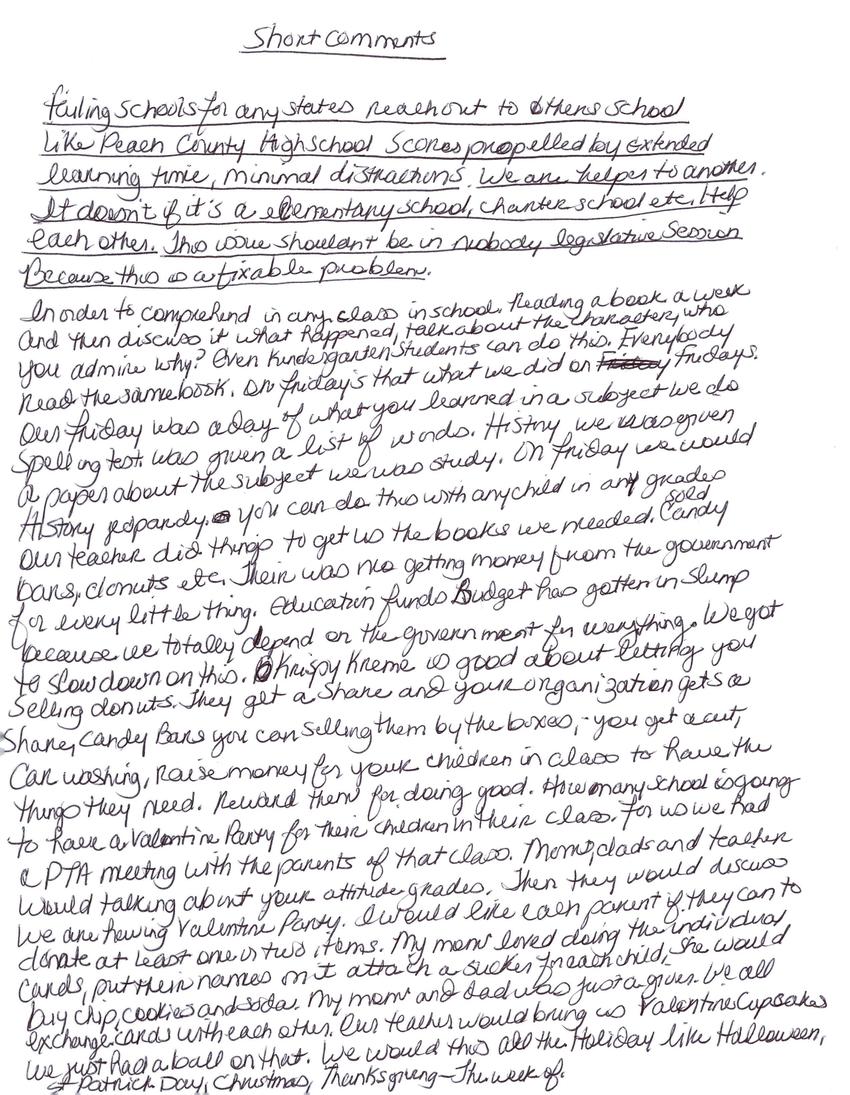 Short comments
failing schools for any states reach out to others school
like Peach County Highschool Scores propelled by extended
learning time, minimal distractions. We are helper to another.
It doesn't if it's a elementary school, charter school etc. Help
each other. This issue shouldn't be in nobody legislative session
Because this is a fixable problem.
In order to comprehend in any class in school. Reading a book a week
and then discuss it what happened, talk about the character, who
you admire why? Even Kindergarten students can do this. Everybody
read the same book. On friday's that what we did on Fridays.
Our friday was a day of what you learned in a subject we do
Spelling test was given a list of words. History we was given
a paper about the subject we was study. On friday we would
History jeopardy. you can do this with any child in any grades
Our teacher did things to get us the books we needed. sold Candy
bars, donuts etc. Their was no getting money from the government
for every little thing. Education funds Budget has gotten in slump
because we totally depend on the government for everything. We got
to slow down on this. Krispy Kreme is good about letting you
selling donuts. They get a share and your organization gets a
share, Candy Bars you can selling them by the boxes, - you get a cut,
Car washing, raise money for your children in class to have the
things they need. Reward them for doing good. How many school is going
to have a Valentine Party for their children in their class. For us we had
a PTA meeting with the parents of that class. Moms, dads and teacher
would talking about your attitude, grades. Then they would discuss
We are having Valentine Party. I would like each parent if they can to
donate at least one or two items. My mom loved doing the individual
cards, put their names on it attach a sucker for each child, She would
buy chip, cookies and soda. My mom and dad was just a giver. We all
exchange cards with each other. Our teacher would bring us Valentine Cupcakes
we just had a ball on that. We would this all the Holiday like Halloween,
St Patrick Day, Christmas, Thanksgiving - The week of.